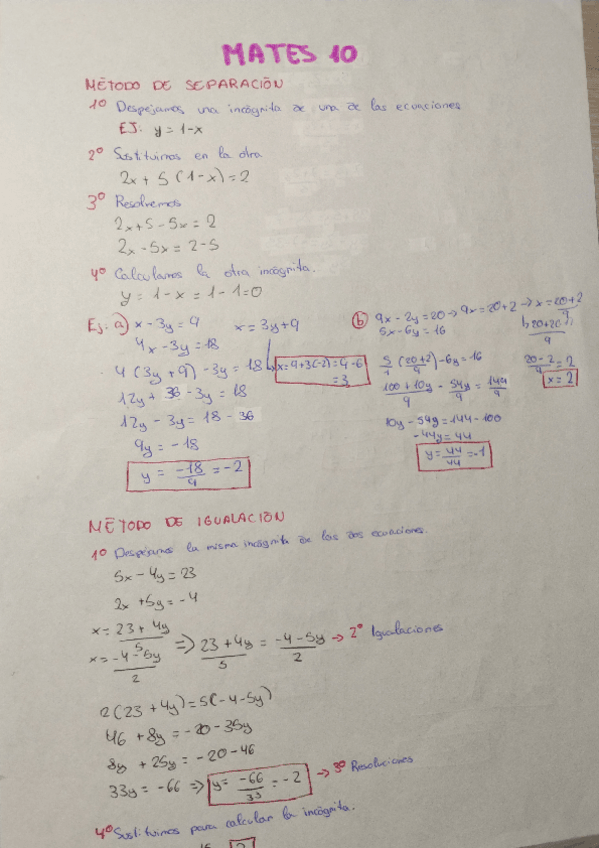 MATES 10
MÉTODO DE SEPARACIÓN
1º Despejamos una incógnita de una de las ecuaciones
EJ. y = 1-x
2º Sustituimos en la otra
2x + 5 (1-x) = 2
3º Resolvemos
2x + 5 - 5x = 2
2x - 5x = 2-5
4º Calculamos la otra incógnita.
y = 1-x = 1-1=0
Ej: a) x - 3y = 9 x = 3y + 9
4x - 3y = 18
4 (3y + 9) - 3y = 18 x = 9 + 3(-2) = 9 - 6
= 3
12y + 36 - 3y = 18
12y - 3y = 18 - 36
9y = -18
y = -18/9 = -2
b) 9x - 2y = 20 → 9x = 20+2 → x = 20+2/9
5x - 6y = 16
5/1 (20+2/9) - 6y = 16
20-2/9 = 2
100 + 10y/9 - 54y/9 = 144/9
x = 2
10y - 54y = 144 - 100
-44y = 44
y = 44/44 = -1
MÉTODO DE IGUALACIÓN
1º Despejamos la misma incógnita de las dos ecuaciones.
5x - 4y = 23
2x + 5y = -4
x = 23 + 4y/5
x = -4 - 5y/2 => 23 + 4y/5 = -4 - 5y/2 → 2º Igualaciones
2(23 + 4y) = 5(-4-5y)
46 + 8y = -20 - 35y
8y + 25y = -20 - 46
33y = -66 => y = -66/33 = -2 → 3º Resoluciones
4º Sustituimos para calcular la incógnita.